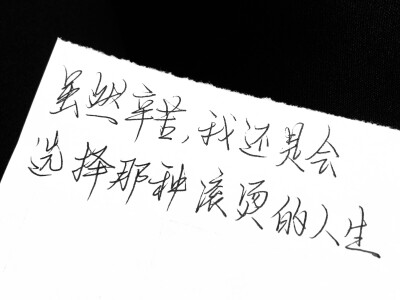 虽然辛苦,我还是会
选择那种滚烫的人生